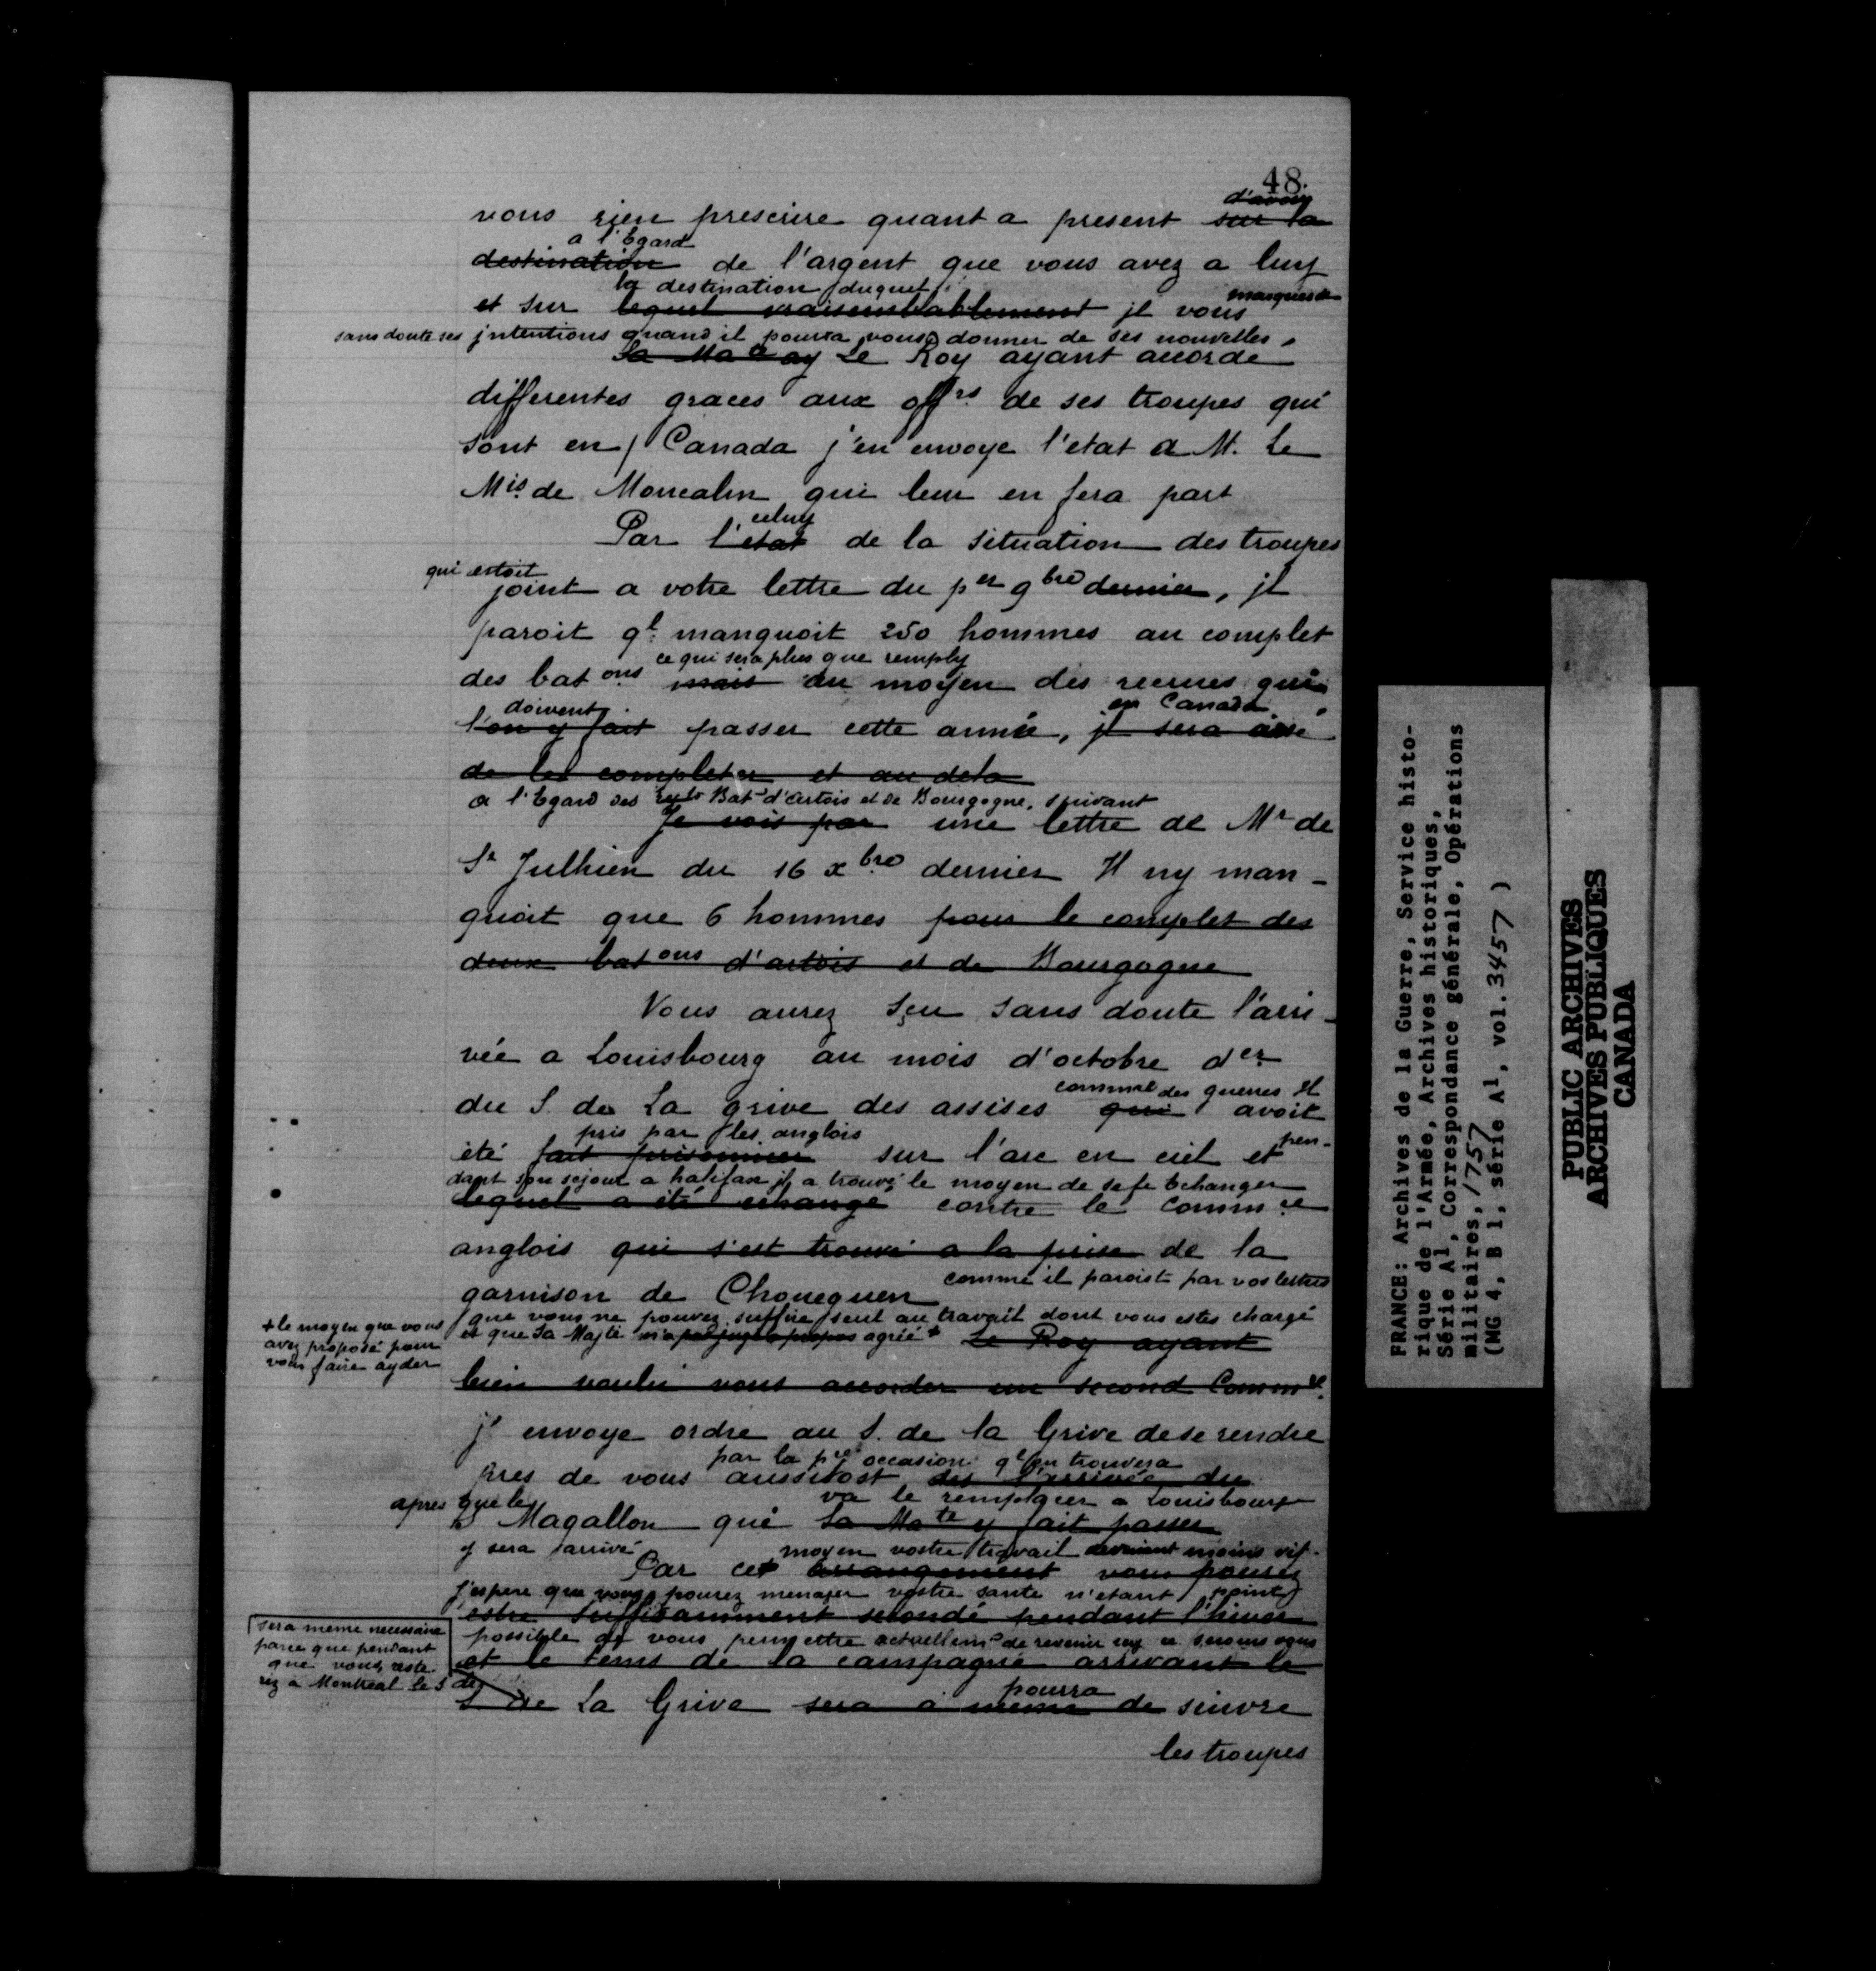 48.
d'avoir
vous rien prescrire quant a present sur la
a l'Egard
destination de l'argent que vous avez a luy
la destination duquel
et sur lequel vraisemblablement jl vous marquera
sans doute ses jntentions quand il pourra vous donner de ses nouvelles.
Sa Mate ay Le Roy ayant accorde
differentes graces aux offrs de ses troupes qui
sont en Canada j'en envoye l'etat a M. Le
Mis de Moncalm qui leur en fera part
celuy
Par l'etat de la situation des troupes
qui estoit
joint a votre lettre du per 9bre dernier, jl
paroit ql manquoit 250 hommes au complet
ce qui sera plus que remply
des batons mais au moyen des recrues qui
doivent en Canada
l'on y fait passer cette année, jl sera aisé
de les completer et au dela
a l'Egard des Bat d'artois et de Bourgogne, suivant
Je vois par une lettre de Mr de
St Julhien du 16 xbre dernier Il ny man-
quoit que 6 hommes pour le complet des
deux batons d'artois et de Bourgogne
Vous aurez sçu sans doute l'arri-
vée a Louisbourg au mois d'octobre der
commre des guerres Il
du S. de La grive des assises qui avoit
pris par les anglois
été fait prisonnier sur l'arc en ciel et pen-
dant son sejour a halifax jl a trouvé le moyen de se fe Echanger
lequel a été echangé contre le commre
anglois qui s'est trouvé a la prise de la
garnison de Choueguen comme il paroist par vos lettres
que vous ne pouvez suffire seul au travail dont vous estes chargé
et que Sa Majté n'a pas jugé a propos agréé + Le Roy ayant
+ le moyen que vous
avez proposé pour
vous faire ayder
bien voulu vous accorder un second Commre
j' envoye ordre au S. de la Grive de se rendre
par la pre occasion ql en trouvera
pres de vous aussitost des l'arrivée du
apres que le va le remplacer a Louisbourg
S Magallon qui Sa Mate y fait passer
y sera arrivé moyen vostre travail devenant moins vif
Par cet arrangement vous pourez
j'espere que vous pourez menager vostre santé n'etant point
estre suffisamment secondé pendant l'hiver
possible de vous permettre actuellemt de revenir icy
et le tems de la campagne arrivant le
sera meme necessaire
parce que pendant
que vous reste
rez a Montreal le S de
pourra
S de La Grive sera a meme de suivre
les troupes
FRANCE: Archives de la Guerre, Service histo-
rique de l'Armée, Archives historiques,
Série A1, Correspondance générale, Opérations
militaires, 1757
(MG 4, B 1, série A1, vol. 3457 )
PUBLIC ARCHIVES
ARCHIVES PUBLIQUES
CANADA